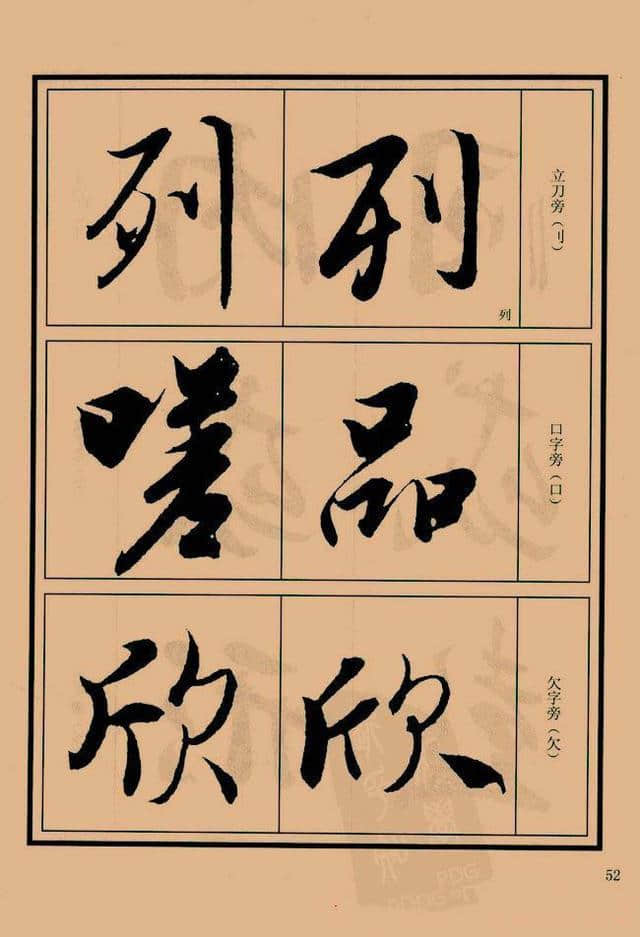 立刀旁（刂）
列 列
列
口字旁（口）
品 嗟
欠字旁（欠）
欣 欣
52